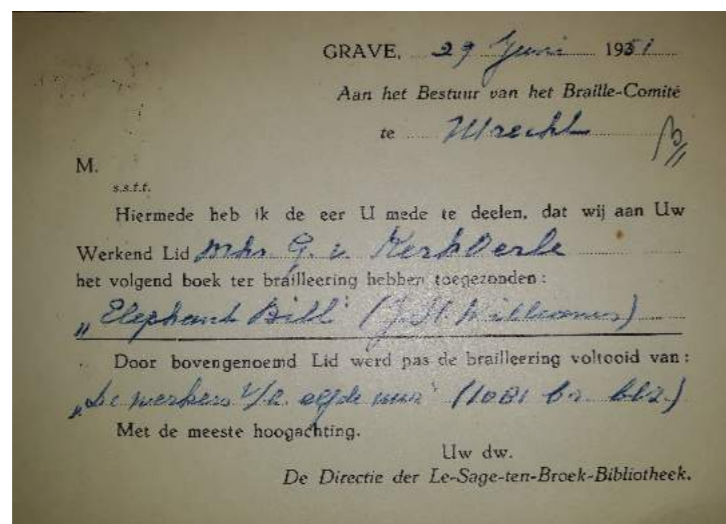 GRAVE, 29 Juni 1951
Aan het Bestuur van het Braille-Comité
te Utrecht
M.
s.s.t.t.
Hiermede heb ik de eer U mede te deelen, dat wij aan Uw
Werkend Lid G. v. Kerkoerle
het volgend boek ter brailleering hebben toegezonden:
„Elephant Bill" (J.H. Williams)
Door bovengenoemd Lid werd pas de brailleering voltooid van:
„De werkers v/h. elfde uur" (1081 br. blz.)
Met de meeste hoogachting.
Uw dw.
De Directie der Le-Sage-ten-Broek-Bibliotheek.